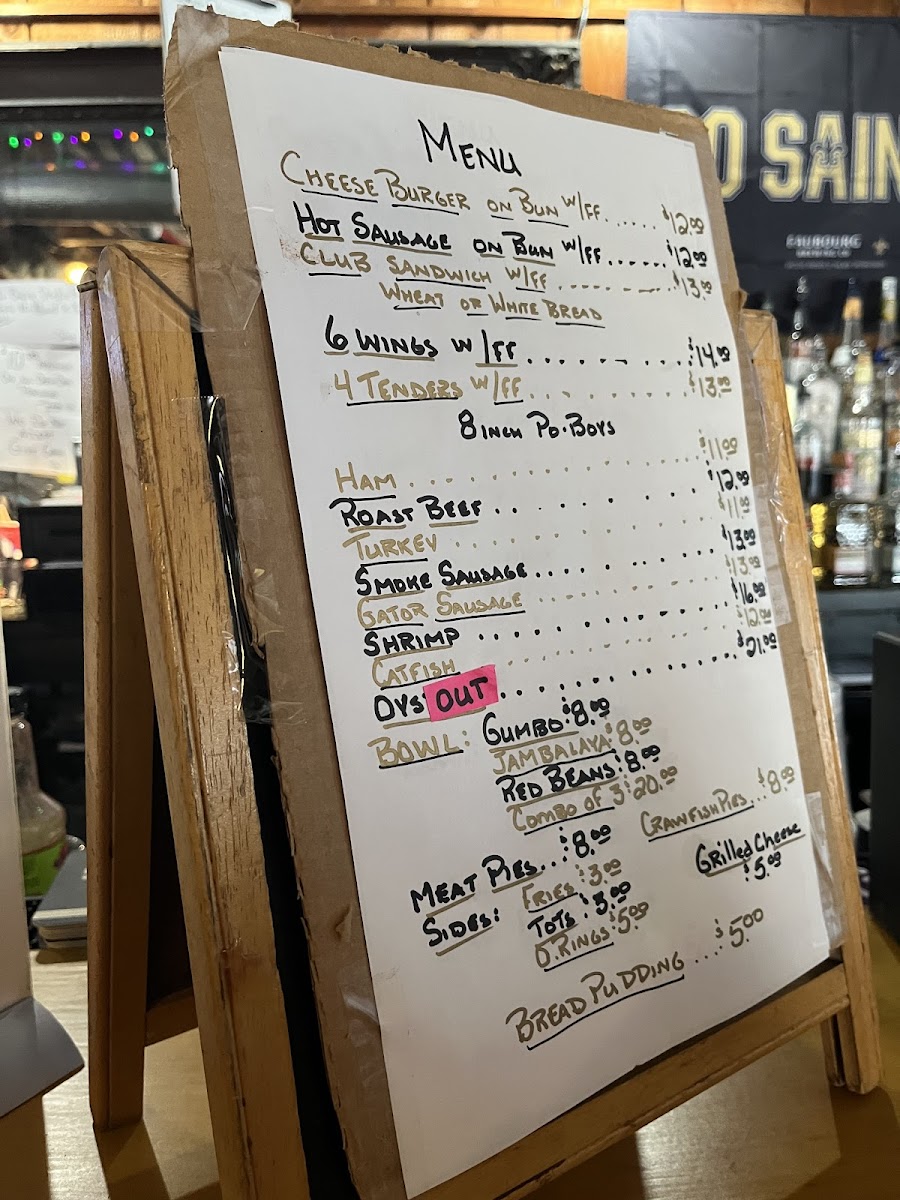 MENU
CHEESE BURGER ON BUN W/FF..... $12.00
HOT SAUSAGE ON BUN W/FF...... $12.00
CLUB SANDWICH W/FF ............ $13.00
WHEAT OR WHITE BREAD
6 WINGS W/FF............ $14.00
4 TENDERS W/FF............ $13.00
8 INCH PO-BOYS
HAM............ $11.00
ROAST BEEF............ $12.00
TURKEY............ $11.00
SMOKE SAUSAGE............ $13.00
GATOR SAUSAGE $13.00
SHRIMP............ $16.00
CATFISH............ $12.00
OYS OUT............ $21.00
BOWL: GUMBO: $8.00
JAMBALAYA: $8.00
RED BEANS: $8.00
COMBO OF 3: $20.00
CRAWFISH PIES... $8.00
MEAT PIES...: $8.00
Grilled Cheese
$5.00
SIDES: FRIES: $3.00
TOTS: $3.00
O.RINGS: $5.00
BREAD PUDDING... $5.00
O SAIN
FAUBOURG